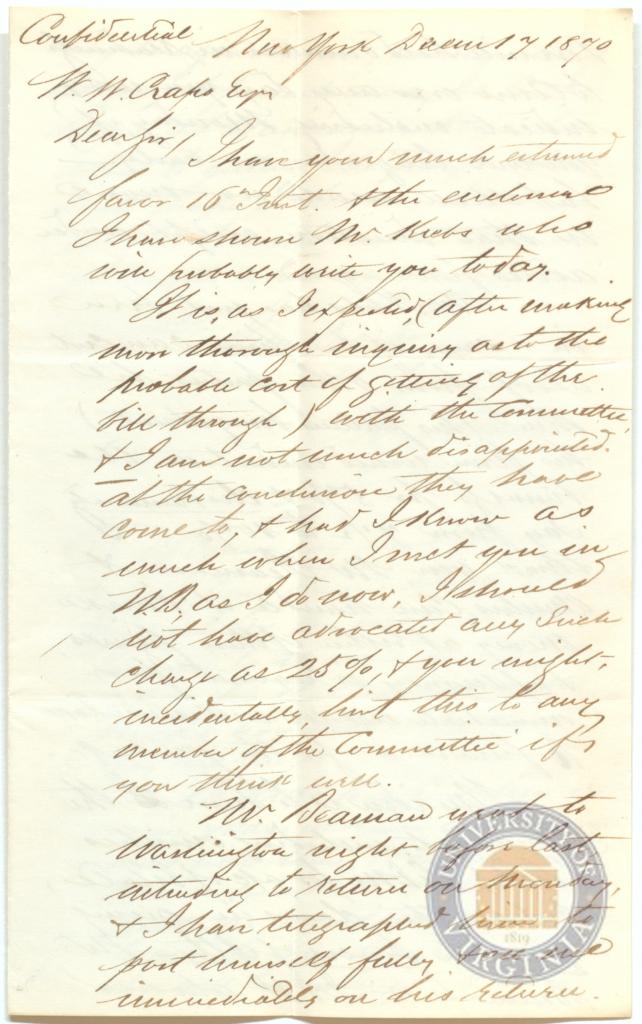 Confidential New York Decem 17 1870
W. W. Crapo Esqr
Dear Sir/ I have your much esteemed
favor 16th Inst. & the enclosure
I have shown Mr. Krebs who
will probably write you today.
It is, as I expected, (after making
more thorough inquiry as to the
probable cost of getting of the
bill through) with the Committee,
& I am not much disappointed.
at the conclusion they have
come to, & had I known as
much when I met you in
N.B. as I do now, I should
not have advocated any such
charge as 25%, & you might,
incidentally, hint this to any
member of the Committee if
you think well.
Mr. Beaman went to
Washington night before last
intending to return on Monday,
& I have telegraphed him to
post himself fully & see me
immediately on his return.
UNIVERSITY OF VIRGINIA
1819